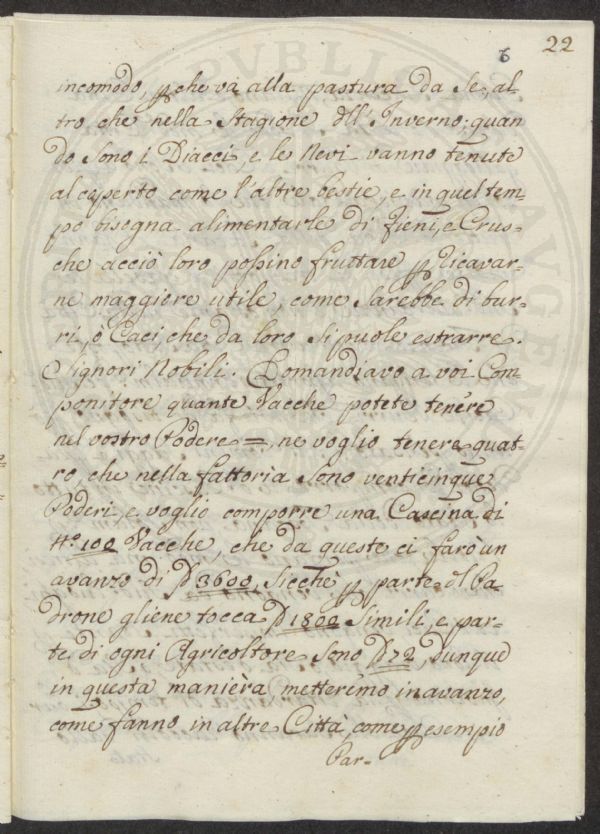 6 22
incomodo, p che và alla pastura da Se, al
tro che nella Stagione dll' Inverno; quan
do Sono i Diacci, e le Nevi vanno tenute
al coperto come l'altre bestie, e in quel tem-
po bisogna alimentarle di Fieni, e Crus-
che acciò loro possino fruttare p Ricavar-
ne maggiore utile, come Sarebbe di bur-
ri, ò Caci, che da loro Si puole estrarre.
Signori Nobili. Domandiavo a voi Com-
ponitore quante Vacche potete tenère
nel vostro Podere =, ne voglio tenere quat-
ro, che nella fattoria Sono venticinque
Poderi, e voglio comporre una Cascina di
No. 100 Vacche, che da queste ci farò un
avanzo di D 3600, Sicche p parte dl Pa-
drone gliene tocca D 1800 Simili, e par-
te di ogni Agricoltore Sono D 72, dunque
in questa manièra metterèmo in avanzo,
come fanno in altre Città, come p esempio
Par-
PVBLICA AVGENT